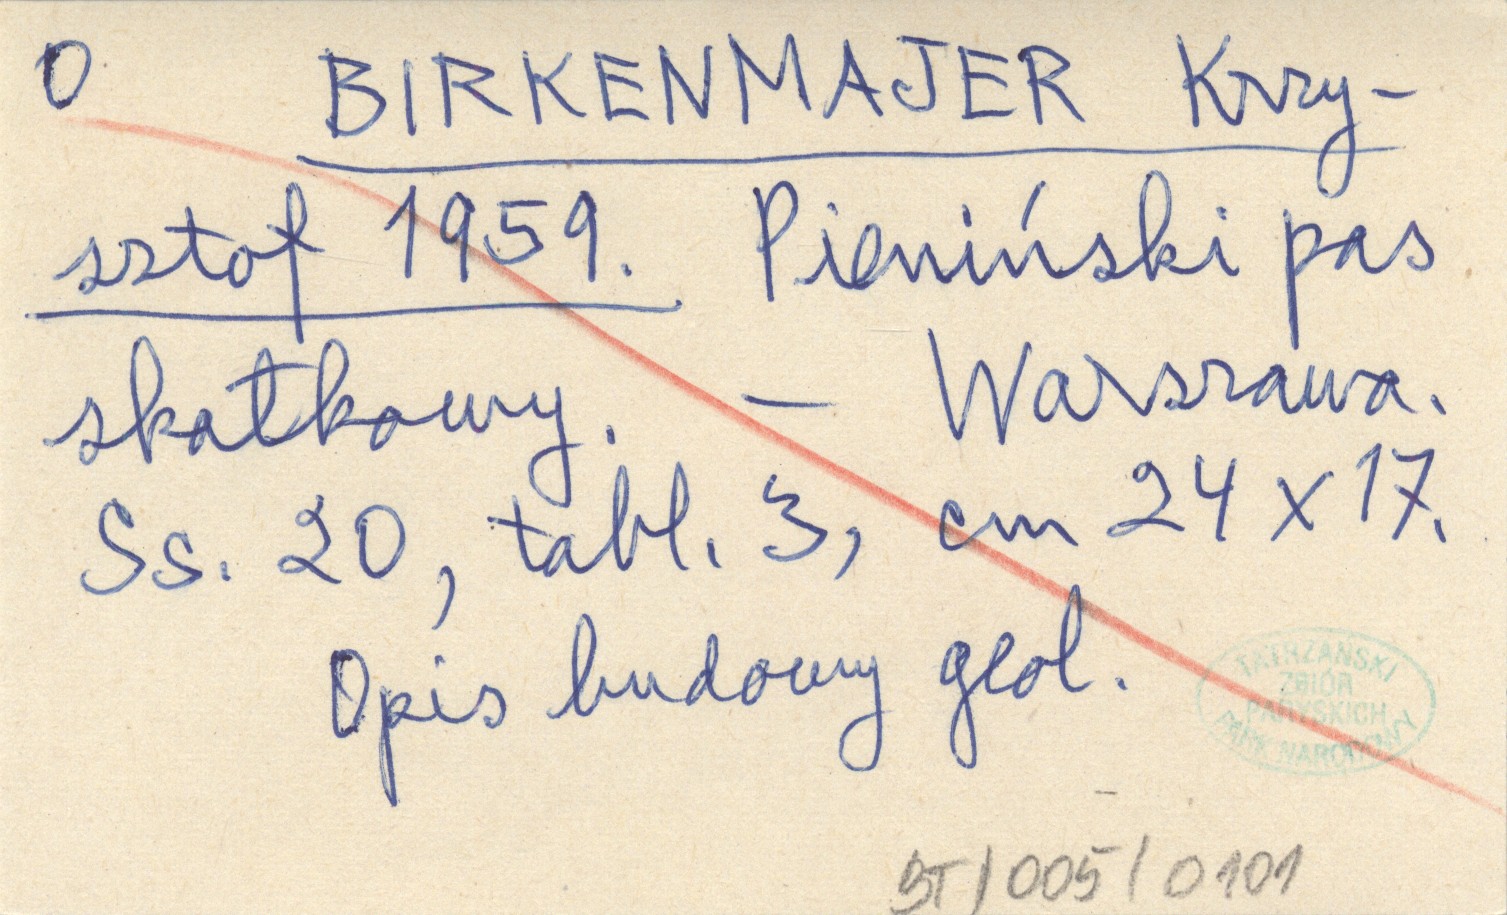 O BIRKENMAJER Krzy-
sztof 1959. Pieniński pas
skałkowy. — Warszawa.
Ss. 20, tabl. 3, cm 24 x 17.
Opis budowy geol.
TATRZAŃSKI
ZBIÓR
PARYSKICH
PARK NARODOWY
BT/005/0101